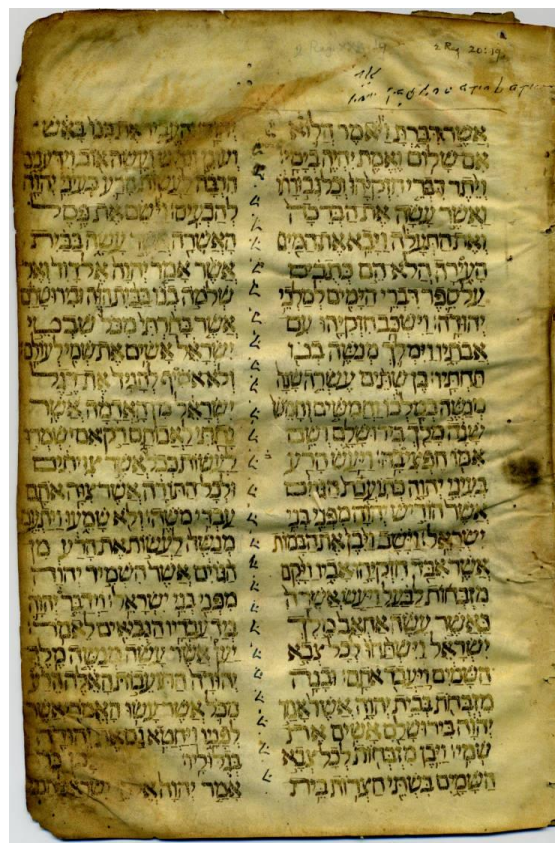 2 Reg 20:19
אשר דברת ויאמר הלוא
אם שלום ואמת יהיה בימי׃
ויתר דברי חזקיהו וכל גבורתו
ואשר עשה את הברכה
ואת התעלה ויבא את המים
העירה הלא הם כתבים
על ספר דברי הימים למלכי
יהודה׃ וישכב חזקיהו עם
אבתיו וימלך מנשה בנו
תחתיו׃ בן שתים עשרה שנה
מנשה במלכו וחמשים וחמש
שנה מלך בירושלם ושם
אמו חפצי בה׃ ויעש הרע
בעיני יהוה כתועבת הגוים
אשר הוריש יהוה מפני בני
ישראל׃ וישב ויבן את הבמות
אשר אבד חזקיהו אביו ויקם
מזבחות לבעל ויעש אשרה
כאשר עשה אחאב מלך
ישראל וישתחו לכל צבא
השמים ויעבד אתם׃ ובנה
מזבחת בבית יהוה אשר אמר
יהוה בירושלם אשים את
שמי׃ ויבן מזבחות לכל צבא
השמים בשתי חצרות בית
והעביר את בנו באש
ועונן ונחש ועשה אוב וידענים
הרבה לעשות הרע בעיני יהוה
להכעיס׃ וישם את פסל
האשרה אשר עשה בבית
אשר אמר יהוה אל דוד ואל
שלמה בנו בבית הזה ובירושלם
אשר בחרתי מכל שבטי
ישראל אשים את שמי לעולם׃
ולא אסיף להניד את רגל
ישראל מן האדמה אשר
נתתי לאבותם רק אם ישמרו
לעשות ככל אשר צויתים
ולכל התורה אשר צוה אתם
עבדי משה׃ ולא שמעו ויתעם
מנשה לעשות את הרע מן
הגוים אשר השמיד יהוה
מפני בני ישראל׃ וידבר יהוה
ביד עבדיו הנביאים לאמר׃
יען אשר עשה מנשה מלך
יהודה התועבות האלה הרע
מכל אשר עשו האמרי אשר
לפניו ויחטא גם את יהודה
בגלוליו׃ לכן כה
אמר יהוה אלהי ישראל